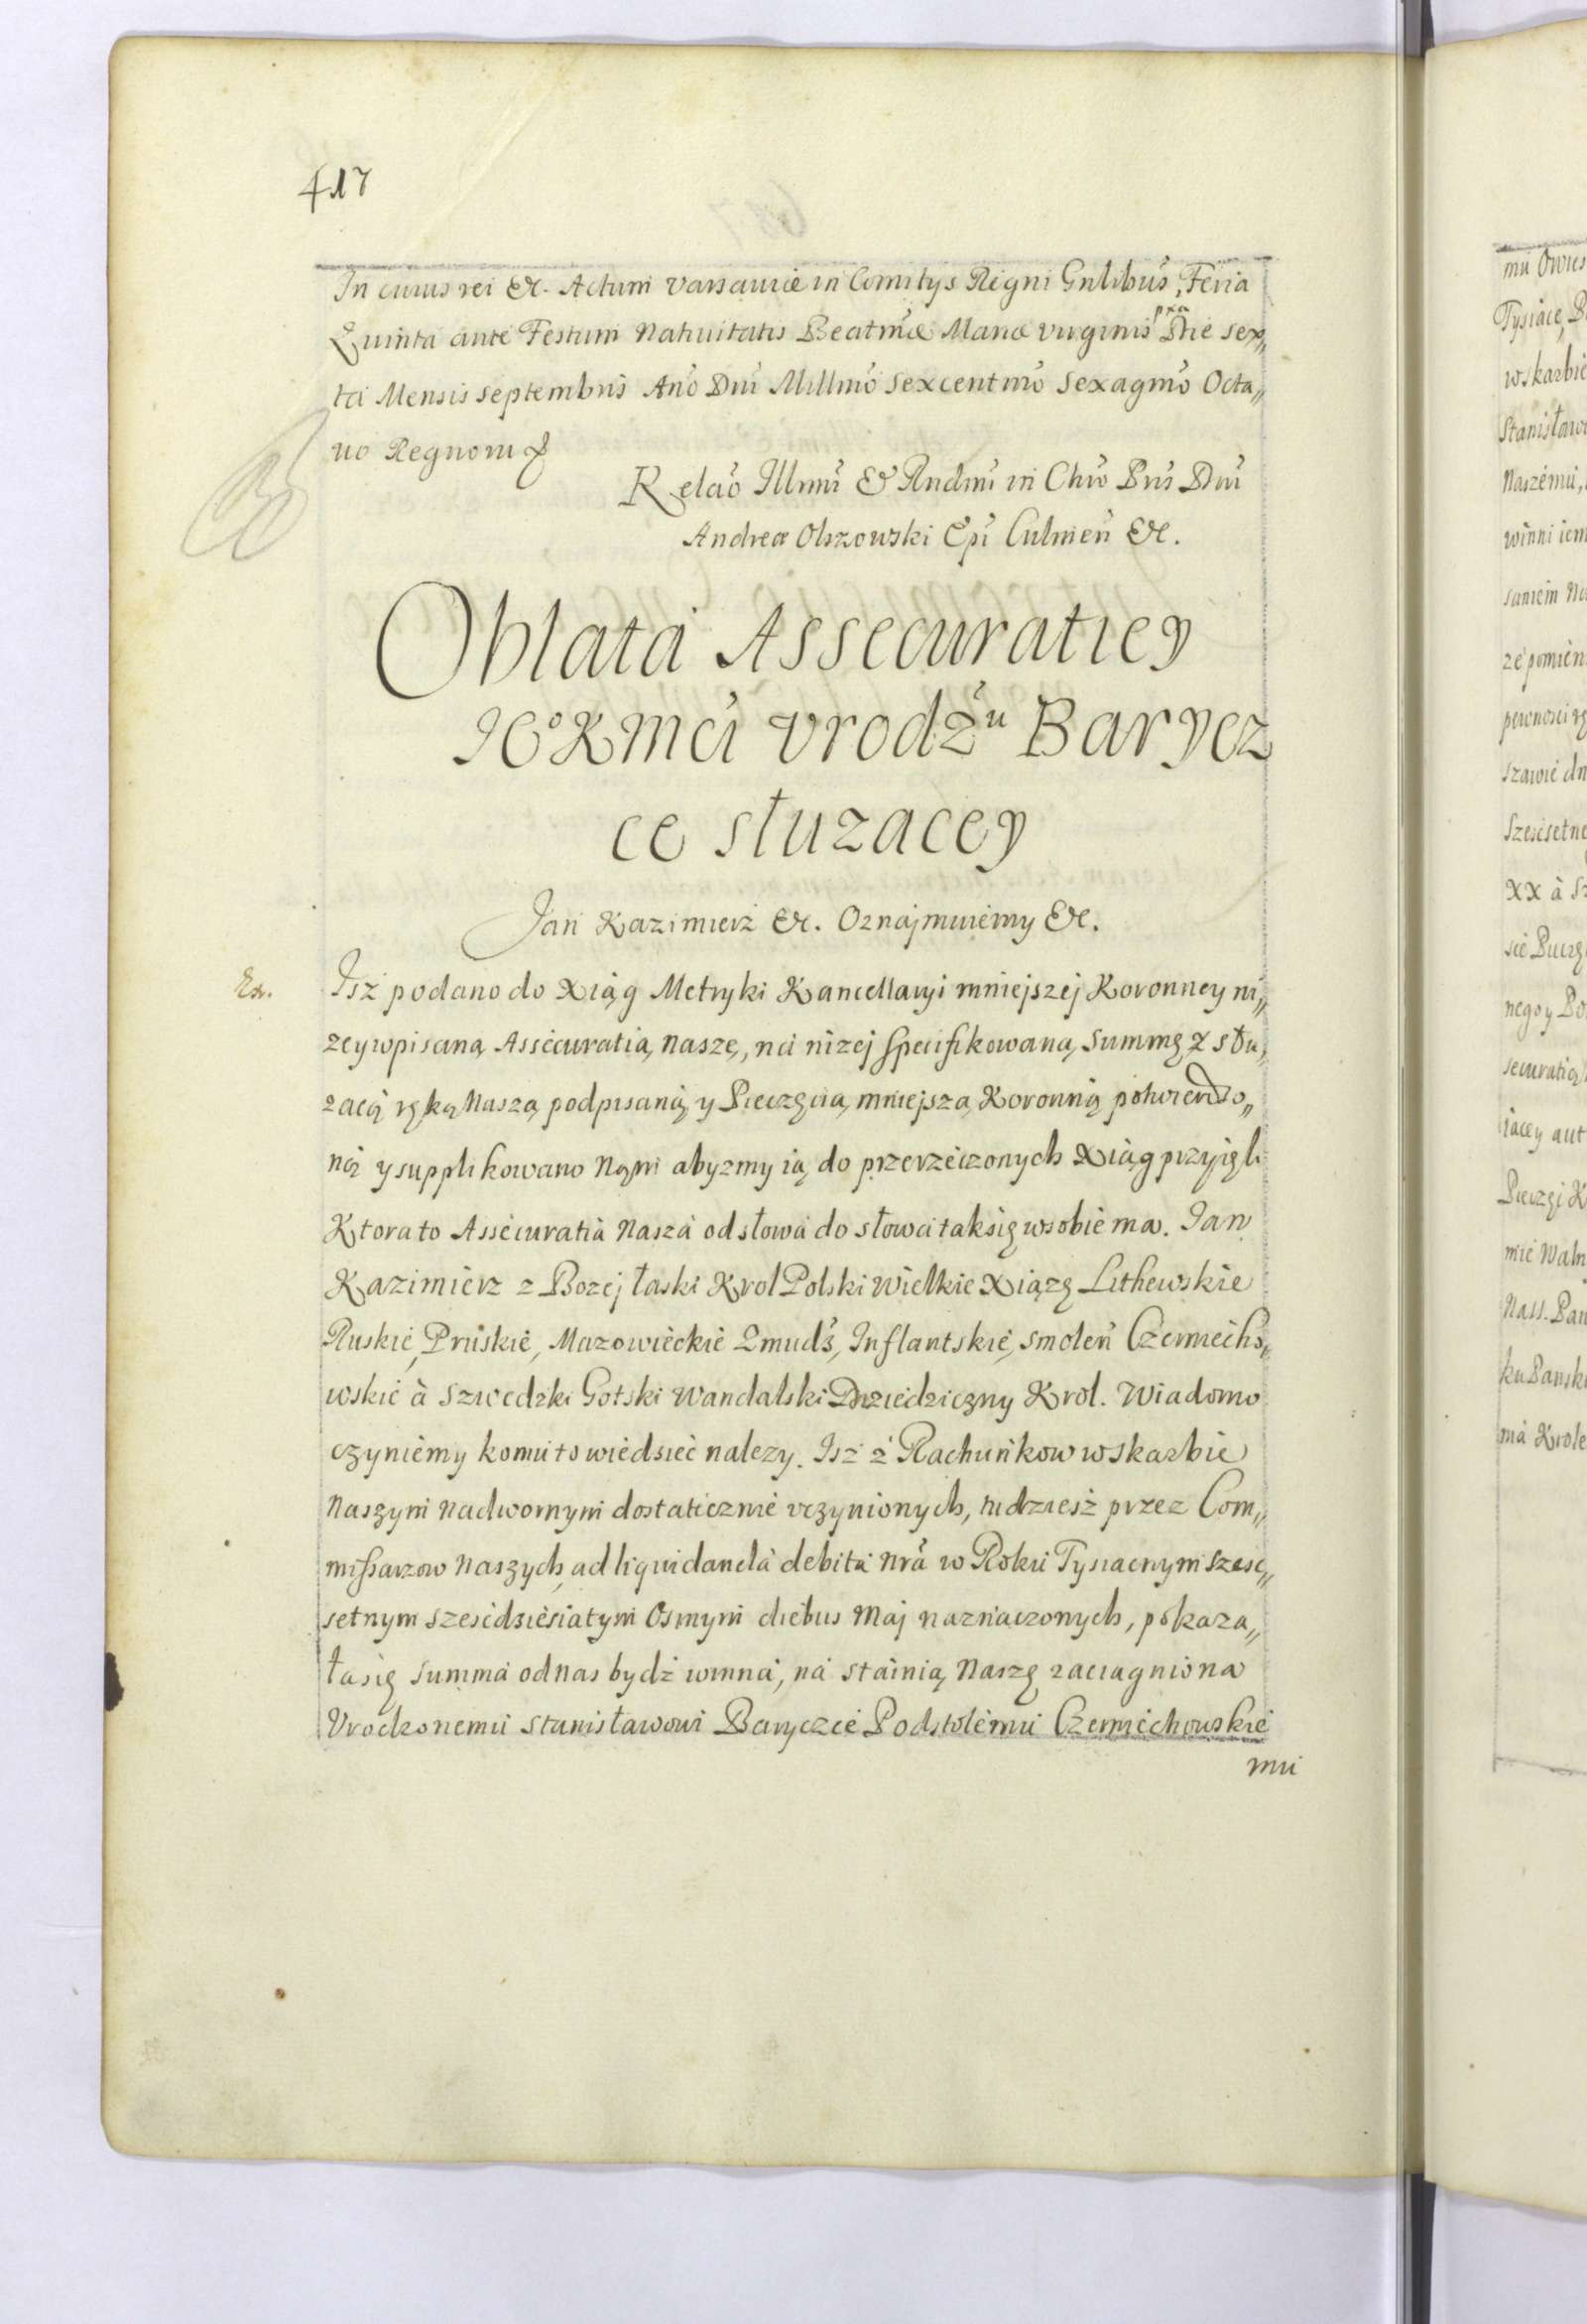 417
In cuius rei &c. Actum Varsaviæ in Comitys Regni Gnlibus, Feria
Quinta ante Festum Nativitatis Beatmæ Mariæ virginis pxa Die sex„
ta Mensis septembris Ano Dni Millmo Sexcentmo Sexagmo Octa„
vo Regnoru
Relao Illmi & Rndmi in Chro Pris Dni
Andreæ Olszowski Epi Culmen &c.
Oblata Assecuratiey
JeoKmci vrodzu Barycz
ce słuzacey
Jan Kazimierz &c. Oznajmuiemy &c.
Ex.
Isz podano do Xiąg Metryki Kancellaryi mniejszej Koronney ni„
zeywpisaną Assecuratią naszę, na nizej specifikowaną summę z słu„
zacą ręką Naszą podpisaną y Pieczęcią mniejszą Koronną potwierdzo„
ną y supplikowano Nam abyzmy ią do przerzeczonych Xiąg przyięli
Ktora to Assecuratia Nasza od słowa do słowa tak się w sobie ma. Jan
Kazimierz z Bozej łaski Krol Polski Wielkie Xiązę Lithewskie
Ruskie, Pruskie, Mazowieckie Zmudz, Inflantskie, smolen Czerniecho„
wskie à Szwedzki Gotski Wandalski Dziedziczny Krol. Wiadomo
czyniemy komu to wiedziec nalezy. Isz z Rachunkow w skarbie
Naszym Nadwornym dostatecznie vczynionych, tudziesz przez Com„
missarzow Naszych ad liquidanda debita nra w Roku Tysiacnym szesc„
setnym szescdziesiatym Osmym diebus Maj naznaczonych, pokaza„
ła się summa od nas bydz winna, na stainią Naszę zaciagniona
Vrodzonemu stanisławowi Baryczce Podstolemu Czerniechowskie
mu